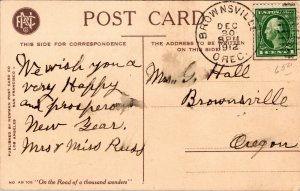 POST CARD
THIS SIDE FOR CORRESPONDENCE
THE ADDRESS TO BE WRITTEN
ON THIS SIDE
BROWNSVILLE
DEC
30
8PM
1912
OREG.
We wish you a
very Happy
and prosperous
New Year.
Mrs & Miss Russ
Mrs. G. Hall
Brownsville
Oregon
PUBLISHED BY NEWMAN POST CARD CO.
LOS ANGELES
NO AR 106 "On the Road of a thousand wonders"